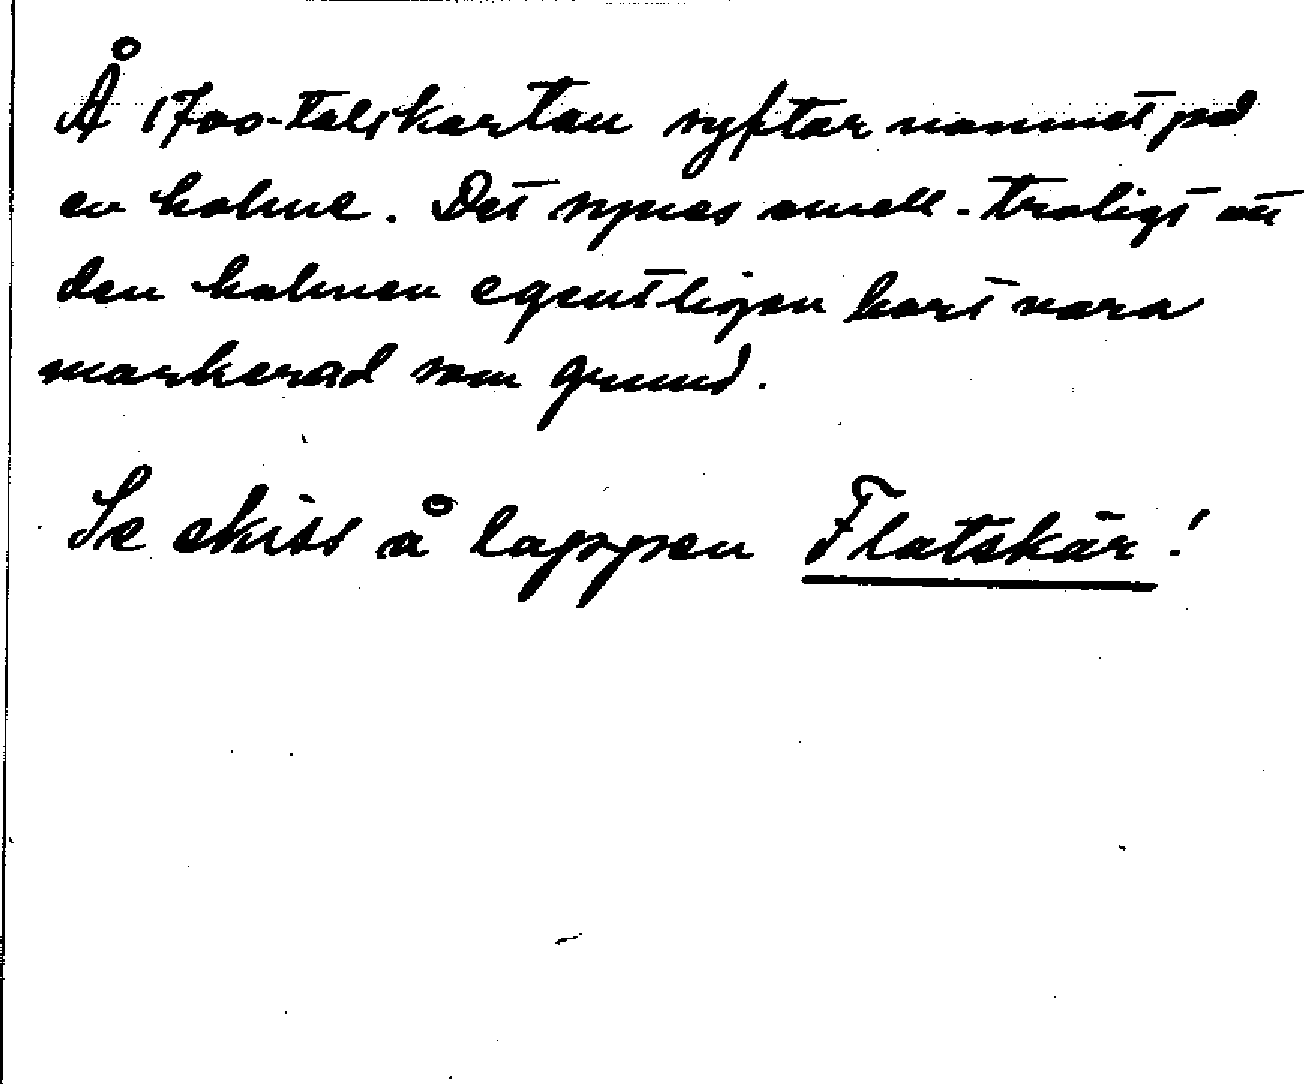 Å 1700-talskartan syftar namnet på
en holme. Det synes emell. troligt att
den holmen egentligen bort vara
markerad som grund.
Se skiss å lappen Flatskär!